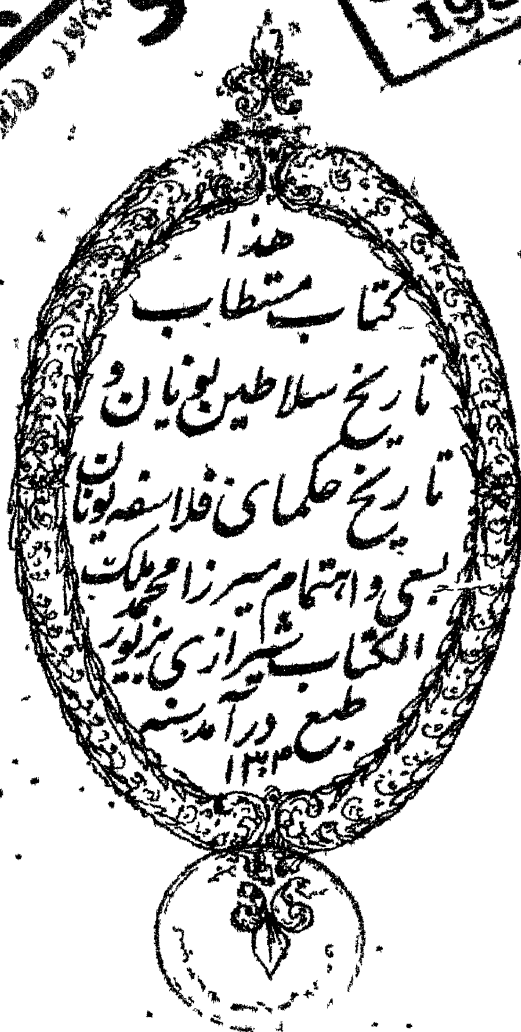 هذا
کتاب مستطاب
تاریخ سلاطین یونان و
تاریخ حکمای فلاسفه یونان
بسعی و اهتمام میرزا محمد ملک
الکتاب شیرازی بزیور
طبع درآمد سنه
۱۳۰۴